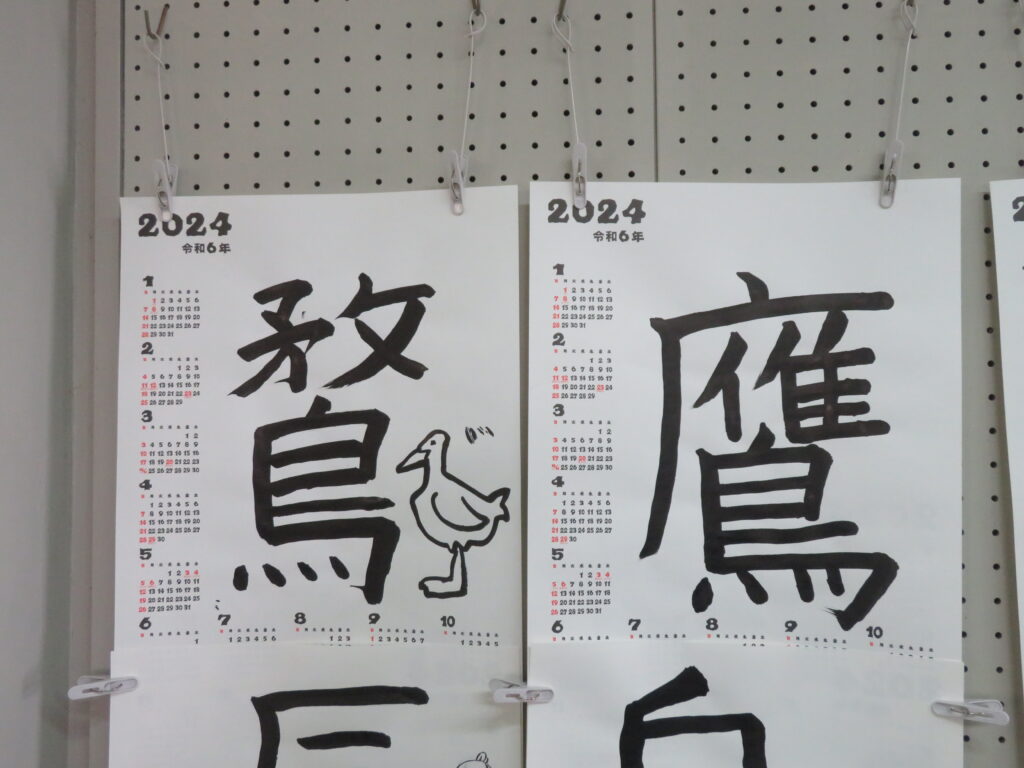 2024
令和6年
1
1 2 3 4 5 6
7 8 9 10 11 12 13
14 15 16 17 18 19 20
21 22 23 24 25 26 27
28 29 30 31
2
1 2 3
4 5 6 7 8 9 10
11 12 13 14 15 16 17
18 19 20 21 22 23 24
25 26 27 28 29
3
1 2
3 4 5 6 7 8 9
10 11 12 13 14 15 16
17 18 19 20 21 22 23
25 26 27 28 29 30
4
1 2 3 4 5 6
7 8 9 10 11 12 13
14 15 16 17 18 19 20
21 22 23 24 25 26 27
28 29 30
5
1 2 3 4
5 6 7 8 9 10 11
12 13 14 15 16 17 18
19 20 21 22 23 24 25
26 27 28 29 30 31
6 7 8 9 10
鶩
ガバ
2024
令和6年
1
1 2 3 4 5 6
7 8 9 10 11 12 13
14 15 16 17 18 19 20
21 22 23 24 25 26 27
28 29 30 31
2
1 2 3
4 5 6 7 8 9 10
11 12 13 14 15 16 17
18 19 20 21 22 23 24
25 26 27 28 29
3
1 2
3 4 5 6 7 8 9
10 11 12 13 14 15 16
17 18 19 20 21 22 23
25 26 27 28 29 30
4
1 2 3 4 5 6
7 8 9 10 11 12 13
14 15 16 17 18 19 20
21 22 23 24 25 26 27
28 29 30
5
1 2 3 4
5 6 7 8 9 10 11
12 13 14 15 16 17 18
19 20 21 22 23 24 25
26 27 28 29 30 31
6 7 8 9 10
鷹